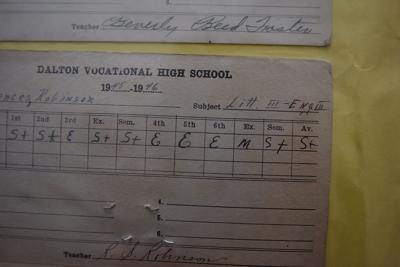 Teacher Beverly Reed Foster
DALTON VOCATIONAL HIGH SCHOOL
1945-1946
Robinson Subject Litt. III - Eng III
1st 2nd 3rd Ex. Sem. 4th 5th 6th Ex. Sem. Av.
S+ S+ E S+ S+ E E E M S+ S+
4.
5.
6.
Teacher R. S. Robinson